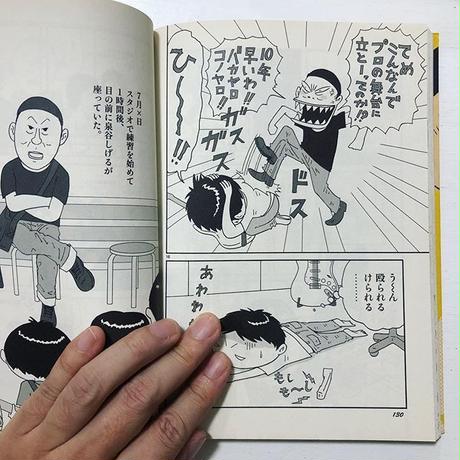 てめ
こんなんで
プロの舞台に
立とーってのか!?
10年
早いわ!!
バカヤロ
コノヤロ!!
ドス
ガス
ガス
ひ〜〜!!
う〜ん
殴られる
けられる
………
もし
も〜し
あわわ
130
7月×日
スタジオで練習を始めて
1時間後、
目の前に泉谷しげるが
座っていた。